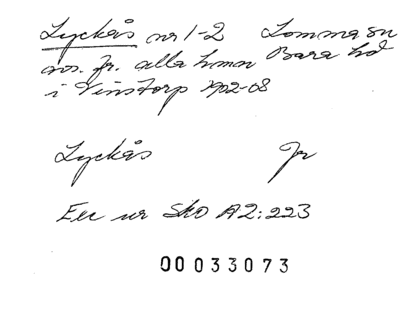 Lyckås nr 1-2 Lomma sn
avs. fr. alla hmn Bara hd
i Vinstorp 1902-08
Lyckås Jr
Enl ur Sko A2:223
00033073